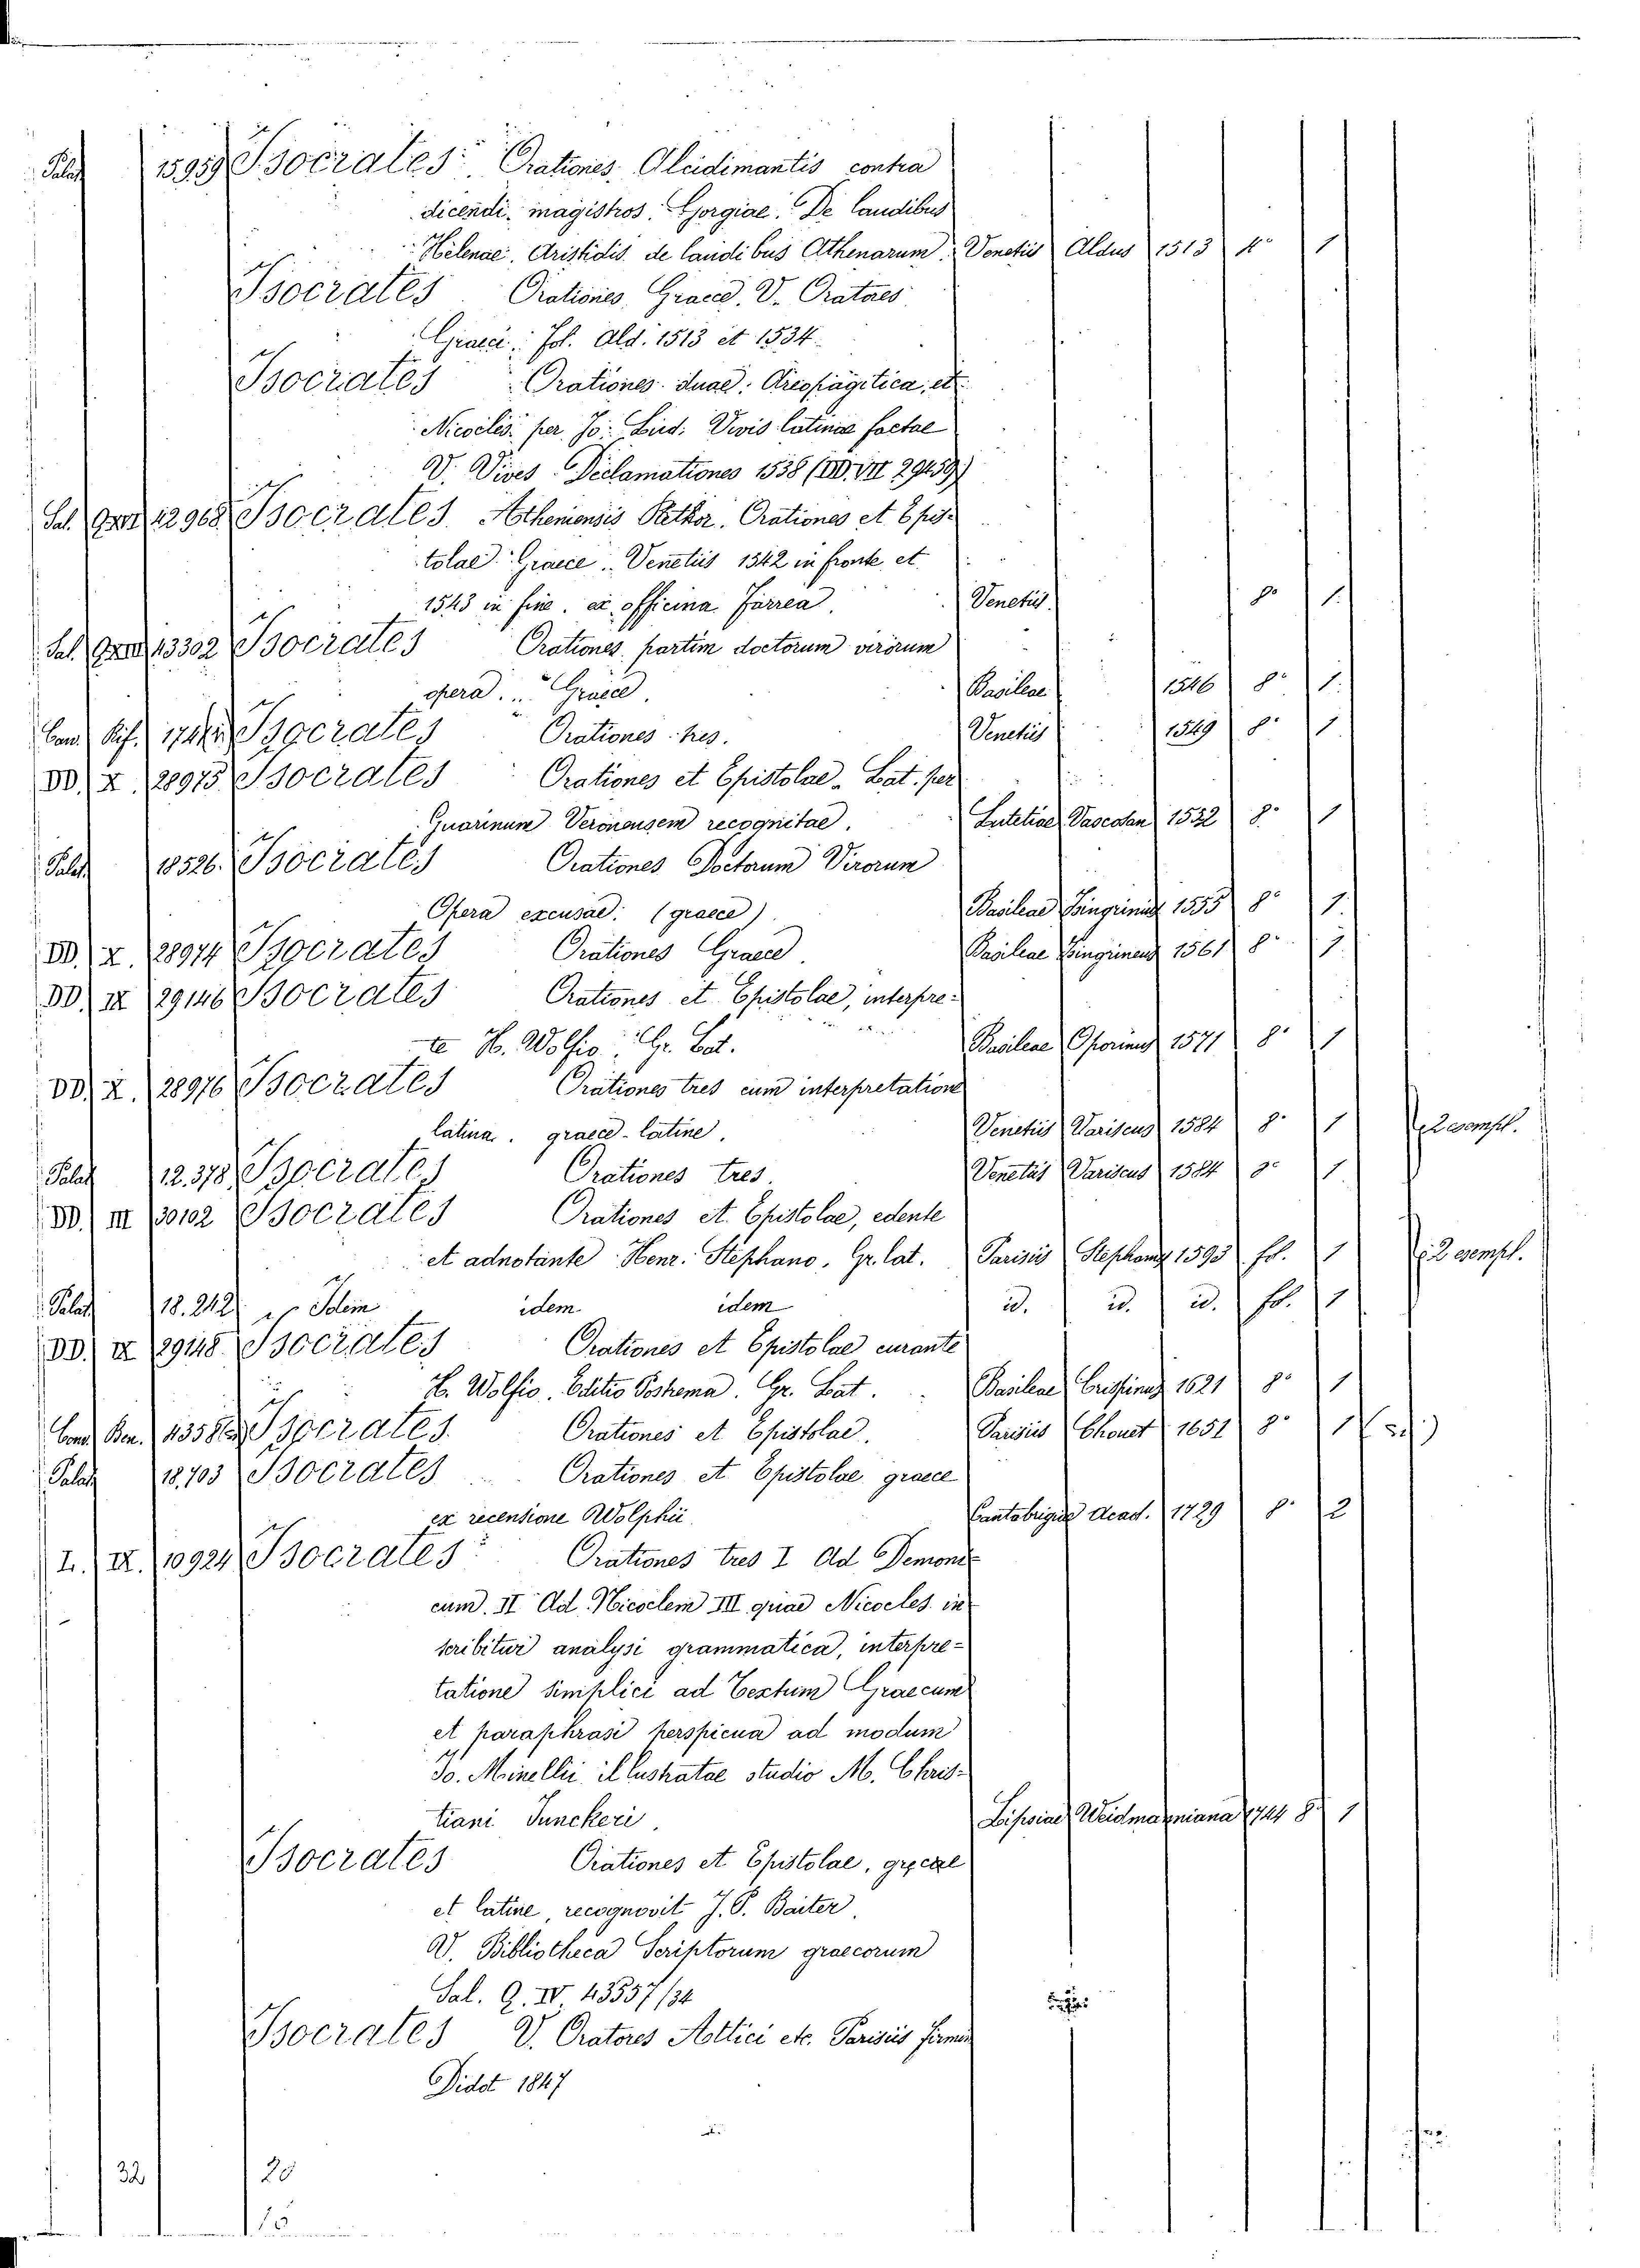 Palat 15959 Isocrates Orationes, Alcidimantis contra
dicendi magistros. Gorgiae. De laudibus
Helenae. Aristidis de laudibus Athenarum. Venetiis Aldus 1513 4° 1
Isocrates Orationes Graece. V. Oratores
Graeci. fol. Ald. 1513 et 1534.
Isocrates Orationes duae: Areopagitica, et
Nicoclis. per Jo: Lud. Vivis latinae factae
V. Vives Declamationes 1538 (DD. VII 29459)
Sal. 12968 Isocrates Atheniensis Rethor. Orationes et Epis-
tolae Graece. Venetiis 1542 in fronte et
1543 in fine. ex officina Farrea. Venetiis. 8° 1.
Sal. 13302 Isocrates Orationes partim doctorum virorum
opera... Graece. Basileae 1546 8° 1.
Cam. Rif. Isocrates Orationes tres. Venetiis 1549 8° 1
DD. X. 28975 Isocrates Orationes et Epistolae. Lat. per
Guarinum Veronensem recognitae. Lutetiae Vascosan 1552 8° 1
Palat 18526. Isocrates Orationes Doctorum Virorum
Opera excusae. (graece) Basileae Bingrinus 1555 8° 1.
DD. X. 28974 Isocrates Orationes Graece. Basileae Bingrineus 1561 8° 1.
DD. IX 29146 Isocrates Orationes et Epistolae, interpre-
te H. Wolfio. Gr. Lat. Basileae Oporinus 1571 8° 1
DD. X. 28976 Isocrates Orationes tres cum interpretatione
latina. graece-latine. Venetiis Variscus 1584 8° 1 2 esempl.
Palat 12.378 Isocrates Orationes tres. Venetiis Variscus 1584 8° 1
DD. III 30102 Isocrates Orationes et Epistolae, edente
et adnotante Henr. Stephano, Gr. lat. Parisiis Stephanus 1593 fol. 1 2 esempl.
Palat 18.242 Idem idem idem id. id. id. fol. 1
DD. IX 29148 Isocrates Orationes et Epistolae curante
H. Wolfio. Editio Postrema. Gr. Lat. Basileae Crispinus 1621 8° 1
Cam. Ben. Isocrates Orationes et Epistolae. Parisiis Chouet 1651 8° 1
Palat 18.703 Isocrates Orationes et Epistolae graece
ex recensione Wolphii Cantabrigiae Acad. 1729 8° 2
L. IX. 10924 Isocrates Orationes tres I Ad Demoni-
cum. II Ad Nicoclem III quae Nicocles in
scribitur analysi grammatica, interpre-
tatione simplici ad Textum Graecum
et paraphrasi perspicua ad modum
Jo. Minellii illustratae studio M. Chris-
tiani Junckeri. Lipsiae Weidmanniana 1744 8° 1
Isocrates Orationes et Epistolae, graece
et latine, recognovit J. G. Baiter.
V. Bibliotheca Scriptorum graecorum
Sal. Q. IV. 43557/34
Isocrates V. Oratores Attici etc. Parisiis Firmin
Didot 1847
32 20
15